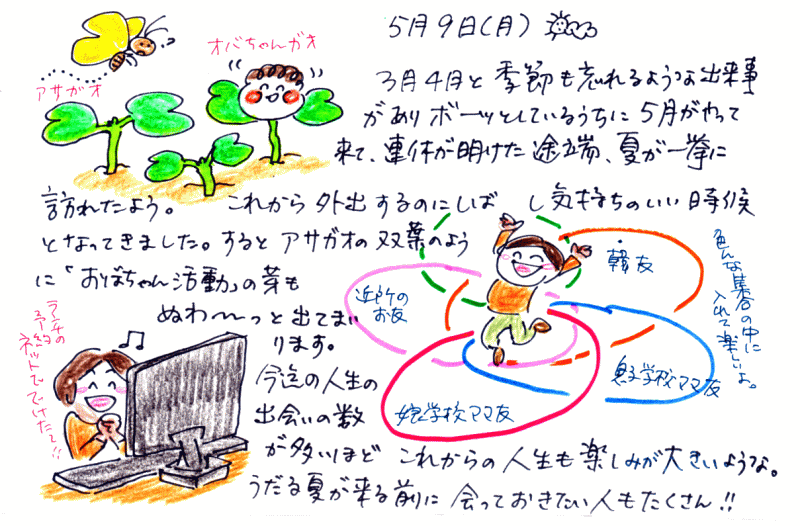 5月9日(月)
オバちゃんガオ
アサガオ
3月4月と季節も忘れるような出来事
がありボーッとしているうちに5月がやって
来て、連休が明けた途端、夏が一挙に
訪れたよう。これから外出するのにしばし気持ちのいい時候
となってきました。するとアサガオの双葉のよう
に「おばちゃん活動」の芽も
ぬわ〜っと出てまい
ります。
今迄の人生の
出会いの数
が多いほどこれからの人生も楽しみが大きいような。
うだる夏が来る前に会っておきたい人もたくさん!!
韓友
近所の
お友
息子学校ママ友
娘学校ママ友
色んな集合の中に
入れて楽しいよ。
ランチの
予約
ネットでできたて!!